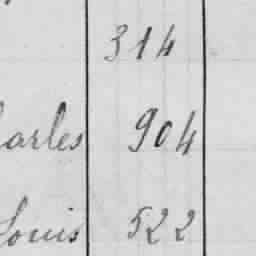 314
arles 904
Louis 522